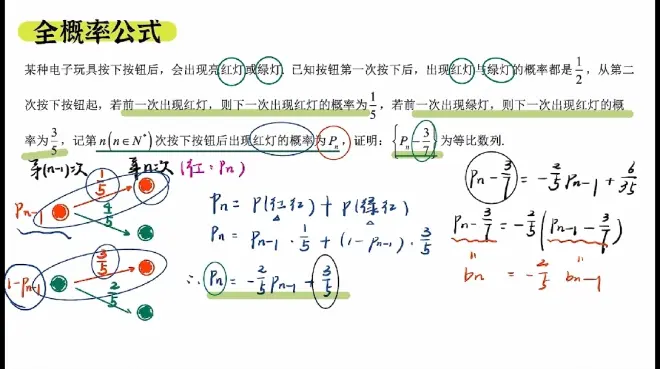 全概率公式
某种电子玩具按下按钮后，会出现亮红灯或绿灯. 已知按钮第一次按下后，出现红灯与绿灯的概率都是1/2，从第二
次按下按钮起，若前一次出现红灯，则下一次出现红灯的概率为1/5，若前一次出现绿灯，则下一次出现红灯的概
率为3/5，记第n(n∈N*)次按下按钮后出现红灯的概率为Pn，证明：{Pn-3/7}为等比数列.
第(n-1)次 第n次 (红：Pn)
Pn-1 1/5 4/5
1-Pn-1 3/5 2/5
Pn = P(红红) + P(绿红)
Pn = Pn-1 · 1/5 + (1-Pn-1) · 3/5
∴ Pn = -2/5 Pn-1 + 3/5
Pn-3/7 = -2/5 Pn-1 + 6/35
Pn-3/7 = -2/5 (Pn-1-3/7)
bn = -2/5 bn-1